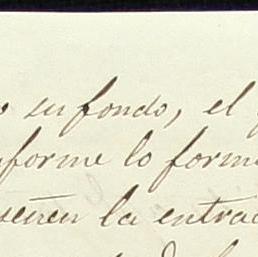 su fondo, el
nforme lo form
señen la entrad